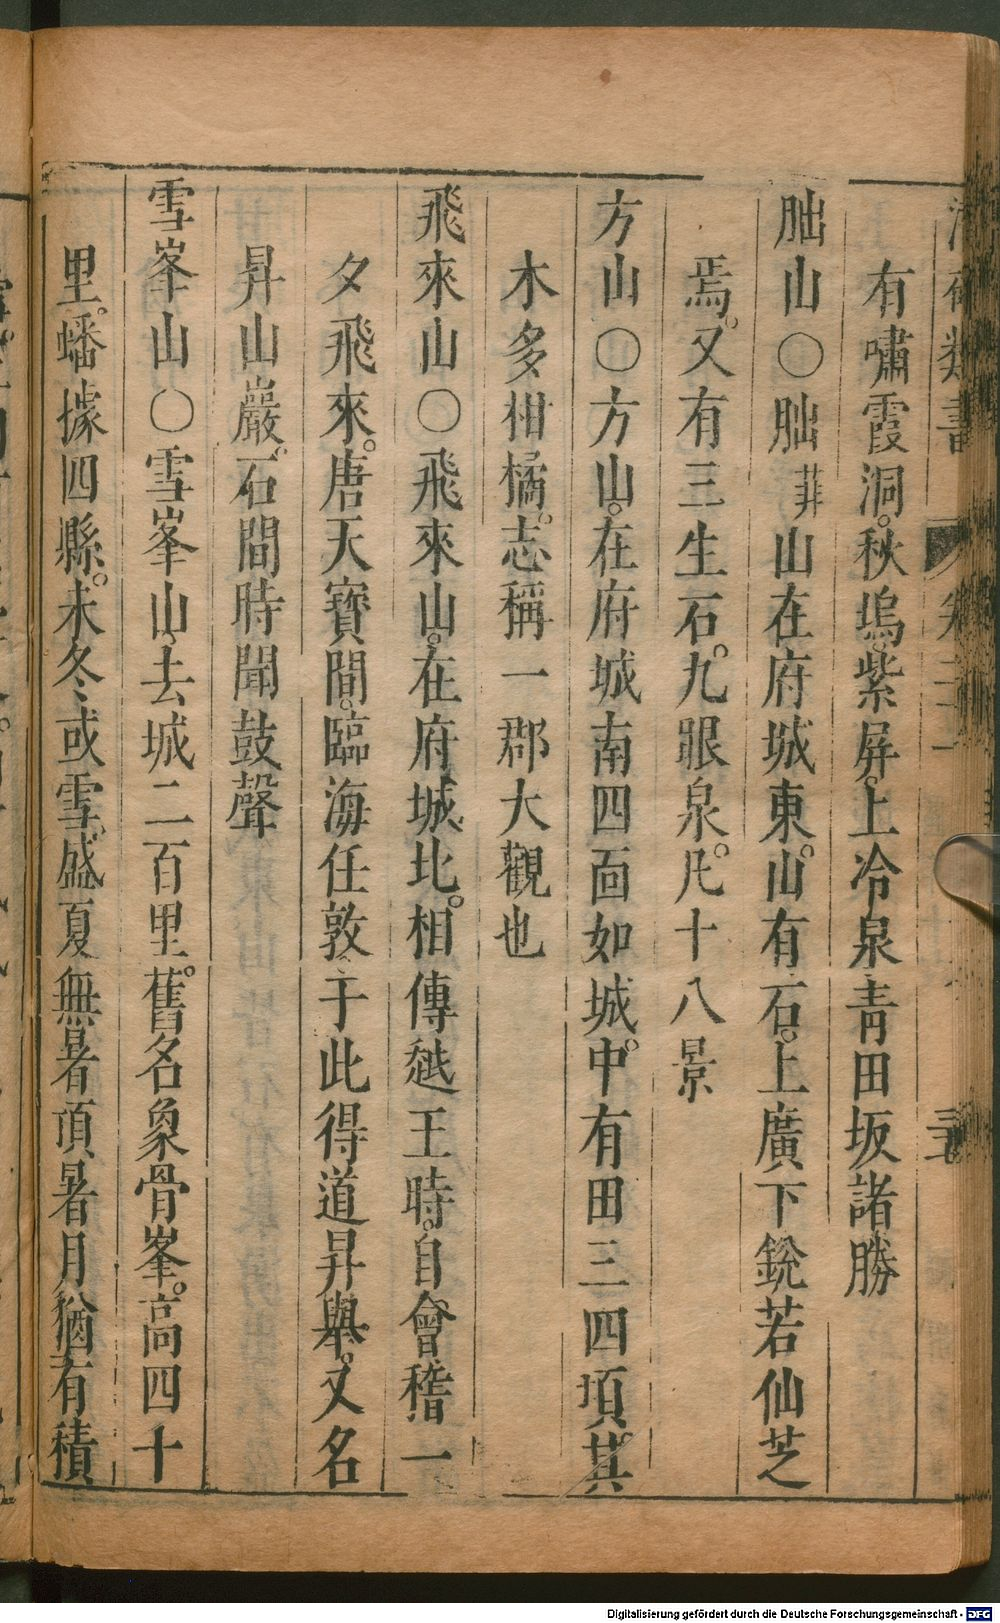 有嘯霞洞。秋塢。紫屏。上冷泉青田坂諸勝
朏山〇朏菲山在府城東。山有石。上廣下銳若仙芝
焉。又有三生石。九眼泉。凡十八景
方山〇方山。在府城南四面如城。中有田三四項。其
木多柑橘。志稱一郡大觀也
飛來山〇飛來山。在府城北。相傳越王時。自會稽一
夕飛來。唐天寶間。臨海任敦于此得道昇舉。又名
昇山巖。石間時聞鼓聲
雪峯山〇雪峯山去城二百里。舊名象骨峯。高四十
里。蟠據四縣。未冬或雪。盛夏無暑頂暑月猶有積
Digitalisierung gefördert durch die Deutsche Forschungsgemeinschaft - DFG